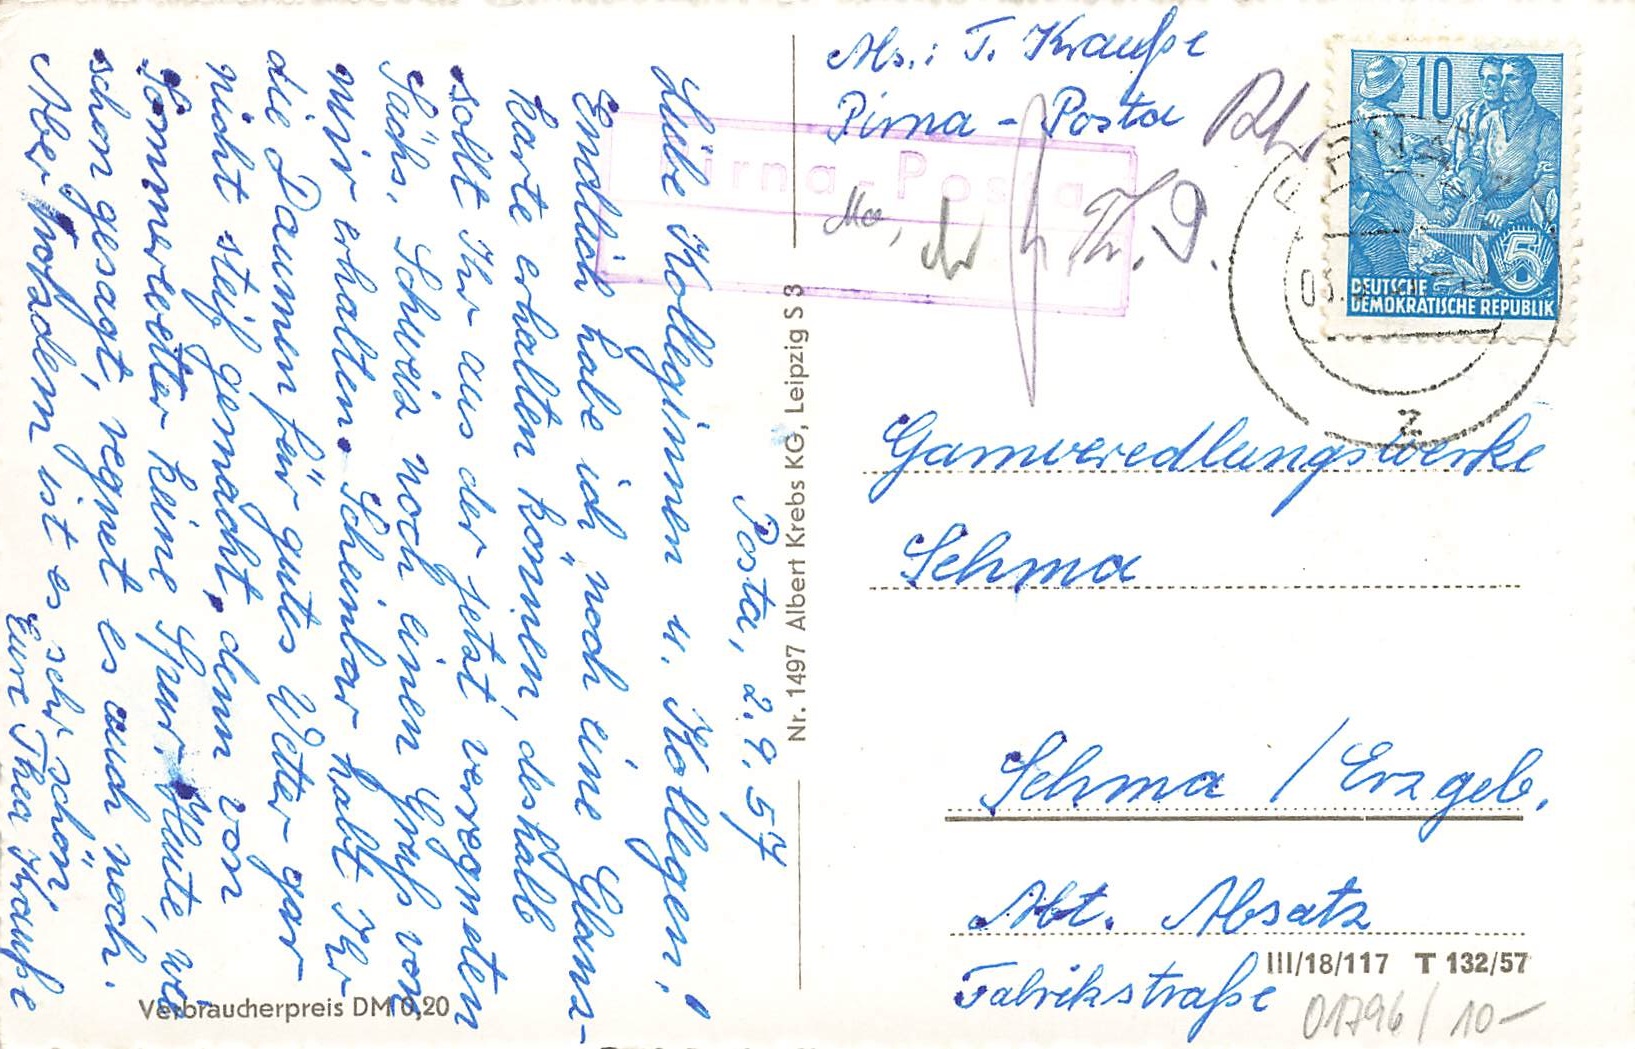 Posta, 2.9.57
Liebe Kolleginnen u. Kollegen!
Endlich habe ich noch eine Glanz-
karte erhalten können, deshalb
sollt Ihr aus der jetzt verregneten
Sächs. Schweiz noch einen Gruß von
mir erhalten. Scheinbar habt Ihr
die Daumen für gutes Wetter gar
nicht steif gemacht, denn von
Sommerwetter keine Spur. Heute, wie
schon gesagt, regnet es auch noch.
Aber trotzdem ist es sehr schön
Eure Thea Krauße
Verbraucherpreis DM 0,20
Nr. 1497 Albert Krebs KG, Leipzig S 3
Abs.: T. Krauße
Pirna - Posta
Pirna-Posta
10
5
DEUTSCHE
DEMOKRATISCHE REPUBLIK
PIRNA
03.
z
Garnveredlungswerke
Sehma
Sehma / Erzgeb.
Abt. Absatz
Fabrikstraße
III/18/117 T 132/57
01796 / 10-